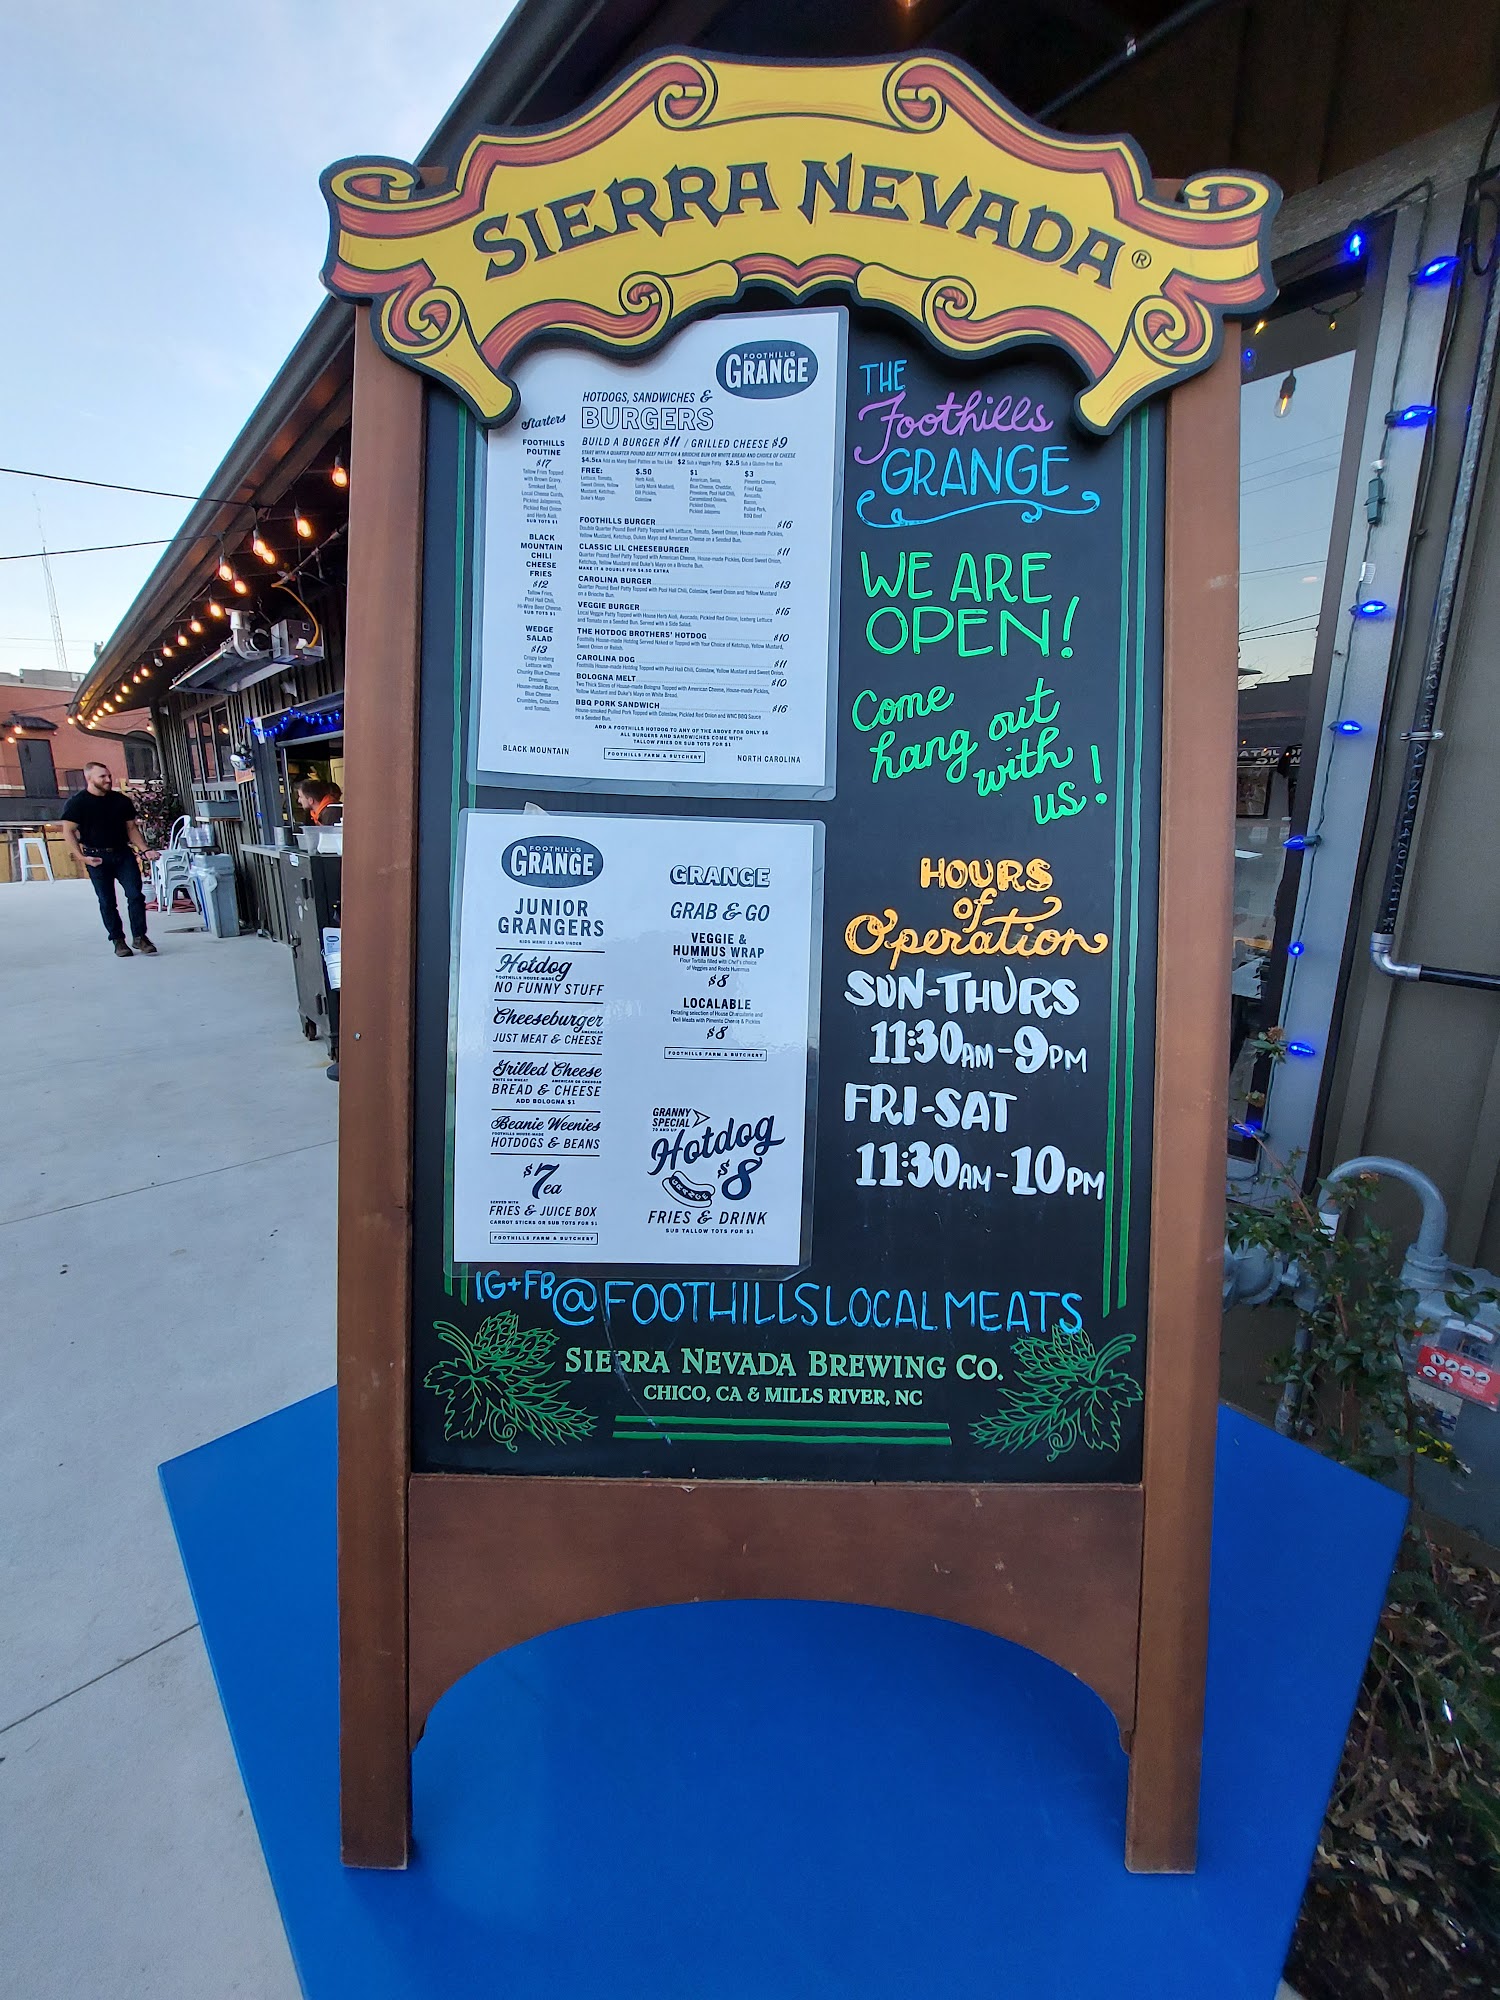 SIERRA NEVADA®
FOOTHILLS
GRANGE
HOTDOGS, SANDWICHES &
BURGERS
BUILD A BURGER $11 / GRILLED CHEESE $9
START WITH A QUARTER POUND BEEF PATTY ON A BRIOCHE BUN OR WHITE BREAD AND CHOICE OF CHEESE
$4.5EA Add as Many Beef Patties as You Like $2 Sub a Veggie Patty $2.5 Sub a Gluten-free Bun
FREE:
Lettuce, Tomato,
Sweet Onion, Yellow
Mustard, Ketchup,
Duke's Mayo
$.50
Herb Aioli,
Lusty Monk Mustard,
Dill Pickles,
Coleslaw
$1
American, Swiss,
Blue Cheese, Cheddar,
Provolone, Pool Hall Chili,
Caramelized Onions,
Pickled Onion,
Pickled Jalapeno
$3
Pimento Cheese,
Fried Egg,
Avocado,
Bacon,
Pulled Pork,
BBQ Beef
FOOTHILLS BURGER $16
Double Quarter Pound Beef Patty Topped with Lettuce, Tomato, Sweet Onion, House-made Pickles,
Yellow Mustard, Ketchup, Dukes Mayo and American Cheese on a Seeded Bun.
CLASSIC LIL CHEESEBURGER $11
Quarter Pound Beef Patty Topped with American Cheese, House-made Pickles, Diced Sweet Onion,
Ketchup, Yellow Mustard and Duke's Mayo on a Brioche Bun.
MAKE IT A DOUBLE FOR $4.50 EXTRA
CAROLINA BURGER $13
Quarter Pound Beef Patty Topped with Pool Hall Chili, Coleslaw, Sweet Onion and Yellow Mustard
on a Brioche Bun.
VEGGIE BURGER $15
Local Veggie Patty Topped with House Herb Aioli, Avocado, Pickled Red Onion, Iceberg Lettuce
and Tomato on a Seeded Bun. Served with a Side Salad.
THE HOTDOG BROTHERS' HOTDOG $10
Foothills House-made Hotdog Served Naked or Topped with Your Choice of Ketchup, Yellow Mustard,
Sweet Onion or Relish.
CAROLINA DOG $11
Foothills House-made Hotdog Topped with Pool Hall Chili, Coleslaw, Yellow Mustard and Sweet Onion.
BOLOGNA MELT $10
Two Thick Slices of House-made Bologna Topped with American Cheese, House-made Pickles,
Yellow Mustard and Duke's Mayo on White Bread.
BBQ PORK SANDWICH $16
House-smoked Pulled Pork Topped with Coleslaw, Pickled Red Onion and WNC BBQ Sauce
on a Seeded Bun.
ADD A FOOTHILLS HOTDOG TO ANY OF THE ABOVE FOR ONLY $6
ALL BURGERS AND SANDWICHES COME WITH
TALLOW FRIES OR SUB TOTS FOR $1
BLACK MOUNTAIN
FOOTHILLS FARM & BUTCHERY
NORTH CAROLINA
Starters
FOOTHILLS
POUTINE
$17
Tallow Fries Topped
with Brown Gravy,
Smoked Beef,
Local Cheese Curds,
Pickled Jalapenos,
Pickled Red Onion
and Herb Aioli.
SUB TOTS $1
BLACK
MOUNTAIN
CHILI
CHEESE
FRIES
$12
Tallow Fries,
Pool Hall Chili,
Hi-Wire Beer Cheese.
SUB TOTS $1
WEDGE
SALAD
$13
Crispy Iceberg
Lettuce with
Chunky Blue Cheese
Dressing,
House-made Bacon,
Blue Cheese
Crumbles, Croutons
and Tomato.
THE
Foothills
GRANGE
WE ARE
OPEN!
Come
hang out
with
us!
HOURS
of
Operation
SUN-THURS
11:30AM-9PM
FRI-SAT
11:30AM-10PM
FOOTHILLS
GRANGE
JUNIOR
GRANGERS
KIDS MENU 12 AND UNDER
Hotdog
FOOTHILLS HOUSE-MADE
NO FUNNY STUFF
Cheeseburger
AMERICAN
JUST MEAT & CHEESE
Grilled Cheese
WHITE OR WHEAT AMERICAN OR CHEDDAR
BREAD & CHEESE
ADD BOLOGNA $1
Beanie Weenies
FOOTHILLS HOUSE-MADE
HOTDOGS & BEANS
$7ea
SERVED WITH
FRIES & JUICE BOX
CARROT STICKS OR SUB TOTS FOR $1
FOOTHILLS FARM & BUTCHERY
GRANGE
GRAB & GO
VEGGIE &
HUMMUS WRAP
Flour Tortilla filled with Chef's choice
of Veggies and Roots Hummus
$8
LOCALABLE
Rotating selection of House Charcuterie and
Deli Meats with Pimento Cheese & Pickles
$8
FOOTHILLS FARM & BUTCHERY
GRANNY
SPECIAL
70 AND UP
Hotdog
GRANGE
$8
FRIES & DRINK
SUB TALLOW TOTS FOR $1
IG+FB@FOOTHILLSLOCALMEATS
SIERRA NEVADA BREWING CO.
CHICO, CA & MILLS RIVER, NC